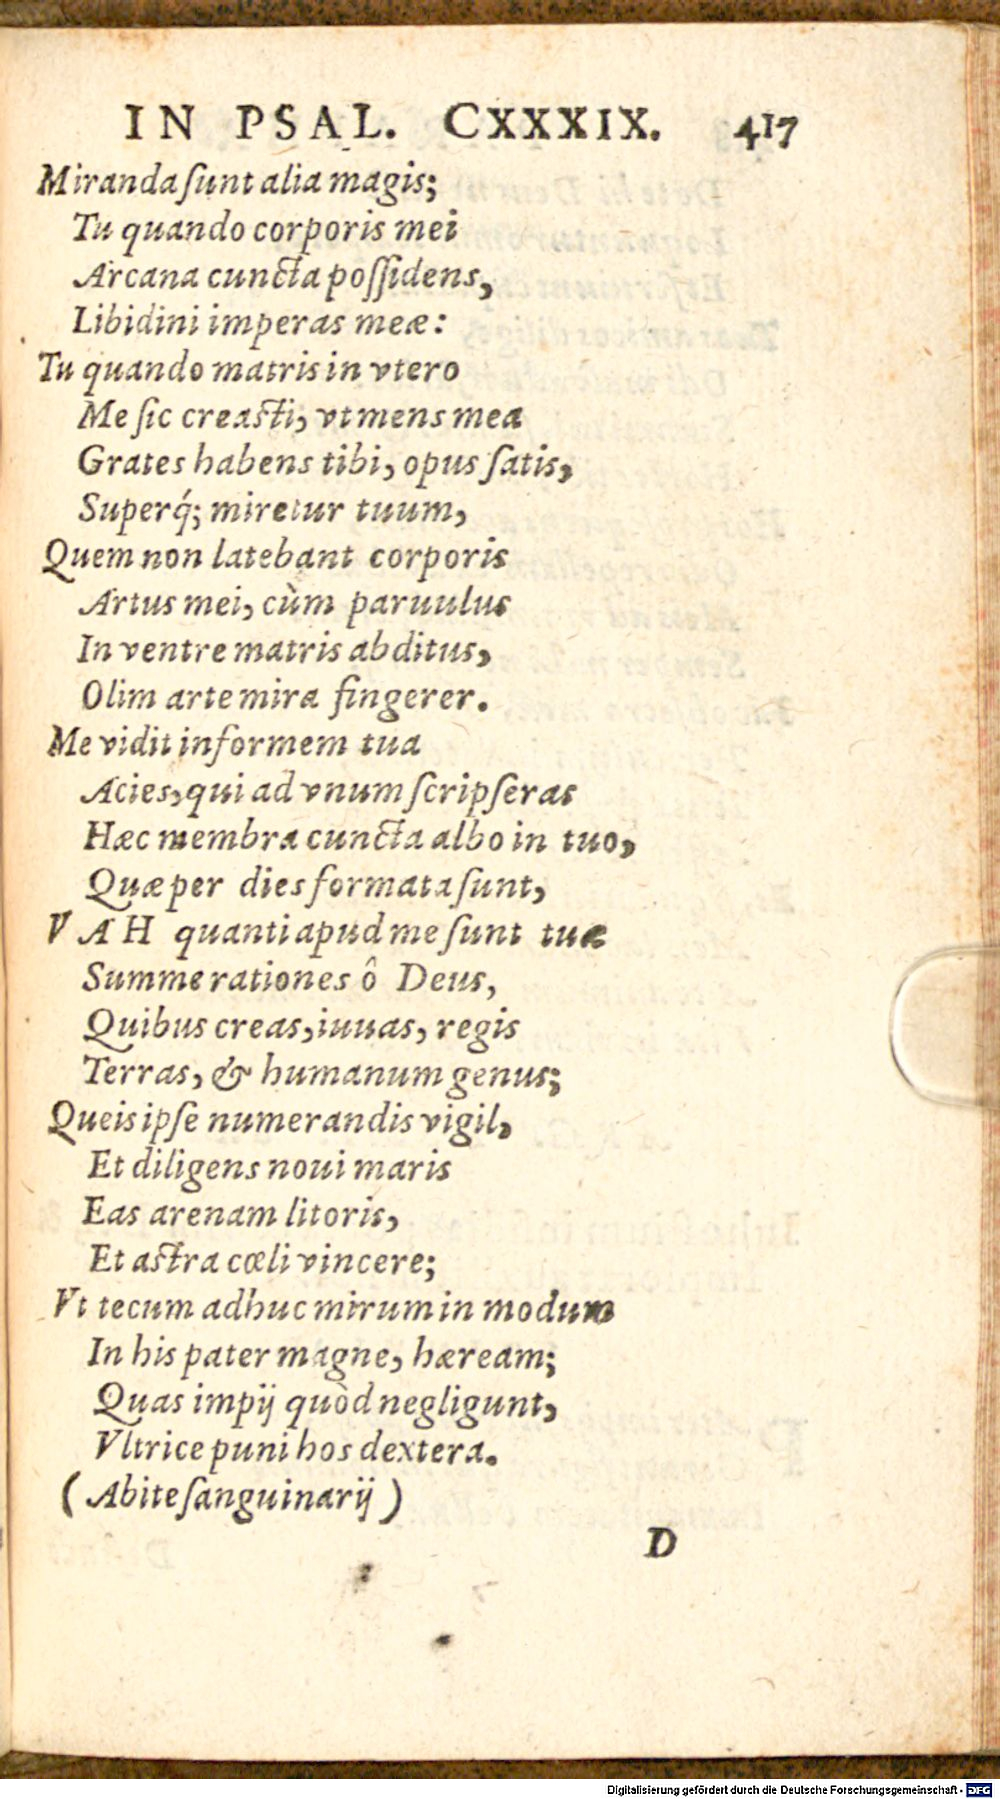 IN PSAL. CXXXIX. 417
Miranda ſunt alia magis;
Tu quando corporis mei
Arcana cuncta poſſidens,
Libidini imperas meæ:
Tu quando matris in vtero
Me ſic creaſti, vt mens mea
Grates habens tibi, opus ſatis,
Superq́; miretur tuum,
Quem non latebant corporis
Artus mei, cùm paruulus
In ventre matris abditus,
Olim arte mira fingerer.
Me vidit informem tua
Acies, qui ad vnum ſcripſeras
Hæc membra cuncta albo in tuo,
Quæ per dies formata ſunt,
VAH quanti apud me ſunt tuæ
Summe rationes ô Deus,
Quibus creas, iuuas, regis
Terras, & humanum genus;
Queis ipſe numerandis vigil,
Et diligens noui maris
Eas arenam litoris,
Et aſtra cœli vincere;
Vt tecum adhuc mirum in modum
In his pater magne, hæream;
Quas impij quòd negligunt,
Vltrice puni hos dextera.
(Abite ſanguinarij)
D
Digitalisierung gefördert durch die Deutsche Forschungsgemeinschaft - DFG